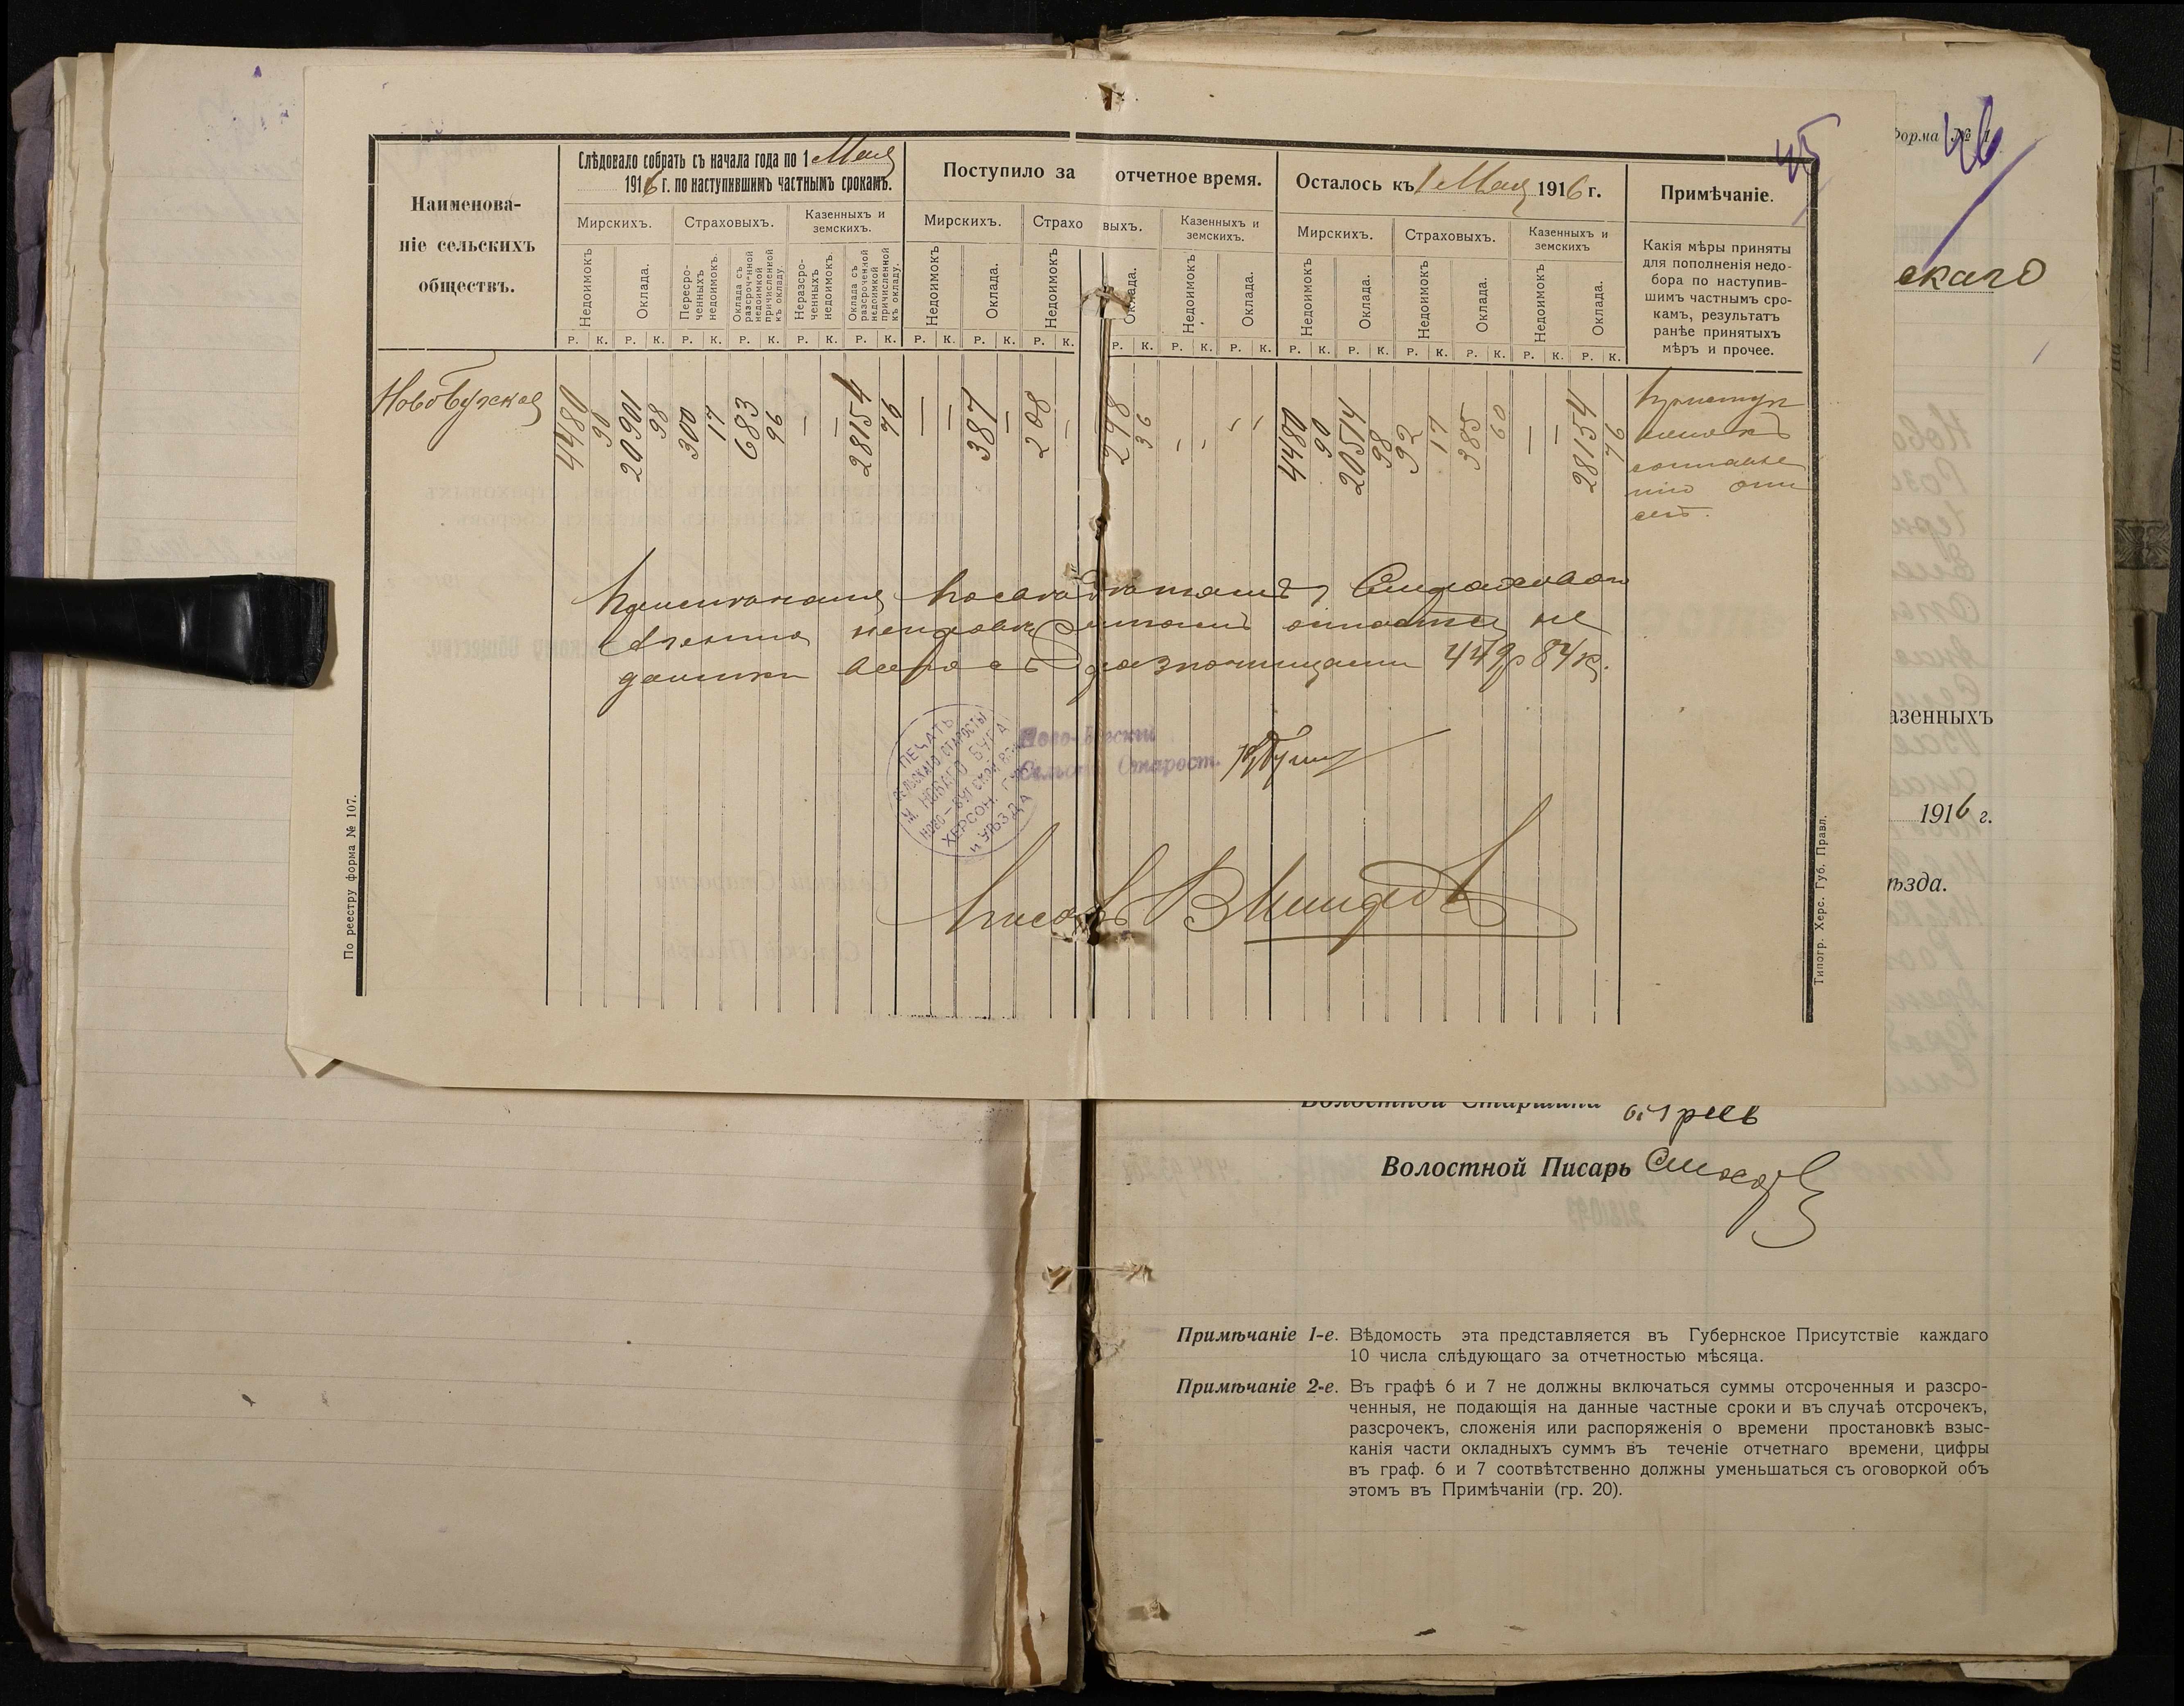 45
46
Форма № 1
Наименова-
ніе сельскихъ
обществъ.
Слѣдовало собрать съ начала года по 1 Мая
1916 г. по наступившимъ частнымъ срокамъ.
Поступило за отчетное время.
Осталось къ 1 Мая 1916 г.
Примѣчаніе.
Мирскихъ. Страховыхъ. Казенныхъ и земскихъ.
Мирскихъ. Страховыхъ. Казенныхъ и земскихъ.
Мирскихъ. Страховыхъ. Казенныхъ и земскихъ
Недоимокъ
Оклада.
Пересро-
ченныхъ
недоимокъ.
Оклада съ
разсроченной
недоимкой
причисленной
къ окладу.
Неразсро-
ченныхъ
недоимокъ.
Оклада съ
разсроченной
недоимкой
причисленной
къ окладу.
Недоимокъ
Оклада.
Недоимокъ
Оклада.
Недоимокъ
Оклада.
Недоимокъ
Оклада.
Недоимокъ
Оклада.
Недоимокъ
Оклада.
Какія мѣры приняты
для пополненія недо-
бора по наступив-
шимъ частнымъ сро-
камъ, результатъ
ранѣе принятыхъ
мѣръ и прочее.
Р. К. Р. К. Р. К. Р. К. Р. К. Р. К. Р. К. Р. К. Р. К. Р. К. Р. К. Р. К. Р. К. Р. К. Р. К. Р. К. Р. К. Р. К.
НовоБугская
4480 90 20901 98 300 17 683 96 — — 28154 76 — — 387 — 208 — 298 36 4480 90 20514 98 92 17 385 60 — — 28154 76
Приступ
лено къ
составле
нію опи
сей.
Примѣчаніе
не
доимки всего съ разночинцами 449р 84к.
ПЕЧАТЬ
СЕЛЬСКАГО СТАРОСТЫ
М. НОВАГО БУГА
НОВО-БУГСКОЙ ВОЛ.
ХЕРСОН. ГУБ.
И УѢЗДА
Ново-Бугскій
Сельскій Старост.
Писарь В
По реестру форма № 107.
Типогр. Херс. Губ. Правл.
скаго
азенныхъ
1916 г.
ѣзда.
Волостной Старшина
Волостной Писарь
Примѣчаніе 1-е. Вѣдомость эта представляется въ Губернское Присутствіе каждаго
10 числа слѣдующаго за отчетностью мѣсяца.
Примѣчаніе 2-е. Въ графѣ 6 и 7 не должны включаться суммы отсроченныя и разсро-
ченныя, не подающія на данные частные сроки и въ случаѣ отсрочекъ,
разсрочекъ, сложенія или распоряженія о времени простановкѣ взыс-
канія части окладныхъ суммъ въ теченіе отчетнаго времени, цифры
въ граф. 6 и 7 соотвѣтственно должны уменьшаться съ оговоркой объ
этомъ въ Примѣчаніи (гр. 20).